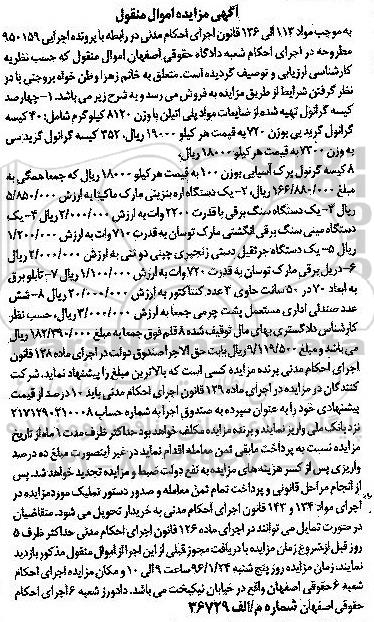 آگهی مزایده اموال منقول
به موجب مواد ۱۱۳ الی ۱۳۶ قانون اجرای احکام مدنی در رابطه با پرونده اجرایی ۹۵۰۱۵۹
مطروحه در اجرای احکام شعبه دادگاه حقوقی اصفهان اموال منقول که حسب نظریه
کارشناسی ارزیابی و توصیف گردیده است. متعلق به خانم زهرا وطن خواه بروجنی با در
نظر گرفتن شرایط از طریق مزایده به فروش می رسد و به شرح زیر می باشد. ۱- چهارصد
کیسه گرانول تهیه شده از ضایعات مواد پلی اتیلن با وزن ۸۱۲۰ کیلوگرم شامل: ۴۰ کیسه
گرانول گرید بی بوزن ۷۲۰ به قیمت هر کیلو ۱۹۰۰۰ ریال، ۳۵۲ کیسه گرانول گرید سی
به وزن ۷۳۰۰ به قیمت هر کیلو ۱۸۰۰۰ ریال،
۸ کیسه گرنول پرک آسیابی بوزن ۱۰۰ به قیمت هر کیلو ۱۸۰۰۰ ریال که جمعا همگی به
مبلغ ۱۶۶/۸۸۰/۰۰۰ ریال، ۲- یک دستگاه اره بنزینی مارک ماکیتا به ارزش ۵/۸۵۰/۰۰۰
ریال ۳- یک دستگاه سنگ برقی با قدرت ۲۲۰۰ وات به ارزش ۲/۰۰۰/۰۰۰ ریال ۴- یک
دستگاه مینی سنگ برقی انگشتی مارک توسان به قدرت ۷۱۰ وات به ارزش ۱/۲۰۰/۰۰۰
ریال ۵- یک دستگاه جرثقیل دستی زنجیری چینی دو تنی به ارزش ۲/۰۰۰/۰۰۰ ریال
۶- دریل برقی مارک توسان به قدرت ۷۲۰ وات به ارزش ۱/۱۰۰/۰۰۰ ریال ۷- تابلو برق
به ابعاد ۷۰ در ۵۰ سانت حاوی ۲ عدد کنتاکتور به ارزش ۲۰۰/۰۰۰ ریال ۸- شش
عدد صندلی اداری مستعمل پشت چرمی جمعا به ارزش ۳/۰۰۰/۰۰۰ ریال، حسب نظر
کارشناس دادگستری بهای مال توقیف شده ۸ قلم فوق جمعا به مبلغ ۱۸۲/۳۹۰/۰۰۰ ریال
می باشد و مبلغ ۹/۱۱۹/۵۰۰ ریال بابت حق الاجرا صندوق دولت در اجرای ماده ۱۲۸ قانون
اجرای احکام مدنی برنده مزایده کسی است که بالاترین مبلغ را پیشنهاد نماید. شرکت
کنندگان در مزایده در اجرای ماده ۱۲۹ قانون اجرای احکام مدنی باید ۱۰ درصد از قیمت
پیشنهادی خود را به عنوان سپرده به صندوق اجرا به شماره حساب ۲۱۷۱۲۹۰۲۱۰۰۰۸
نزد بانک ملی واریز نمایند و برنده مزایده مکلف خواهد بود حداکثر ظرف مدت ۱ ماه از تاریخ
مزایده نسبت به پرداخت مابقی ثمن معامله اقدام نماید در غیر اینصورت مبلغ ده درصد
واریزی پس از کسر هزینه های مزایده به نفع دولت ضبط و مزایده تجدید خواهد شد. پس
از انجام مراحل قانونی و پرداخت تمام ثمن معامله و صدور دستور تملیک مورد مزایده در
اجرای مواد ۱۳۴ و ۱۴۲ قانون اجرای احکام مدنی به خریدار تحویل می شود. متقاضیان
در صورت تمایل می توانند در اجرای ماده ۱۲۶ قانون اجرای احکام مدنی حداکثر ظرف ۵
روز قبل از شروع زمان مزایده با دریافت مجوز قبلی از این اجرا از اموال منقول مذکور بازدید
نمایند. زمان مزایده روز پنج شنبه ۹۶/۱/۲۴ ساعت ۹ الی ۱۰ و مکان مزایده اجرای احکام
شعبه ۶ حقوقی اصفهان واقع در خیابان نیکبخت می باشد. دادورز شعبه ۶ اجرای احکام
حقوقی اصفهان شماره م/الف ۳۶۷۲۹